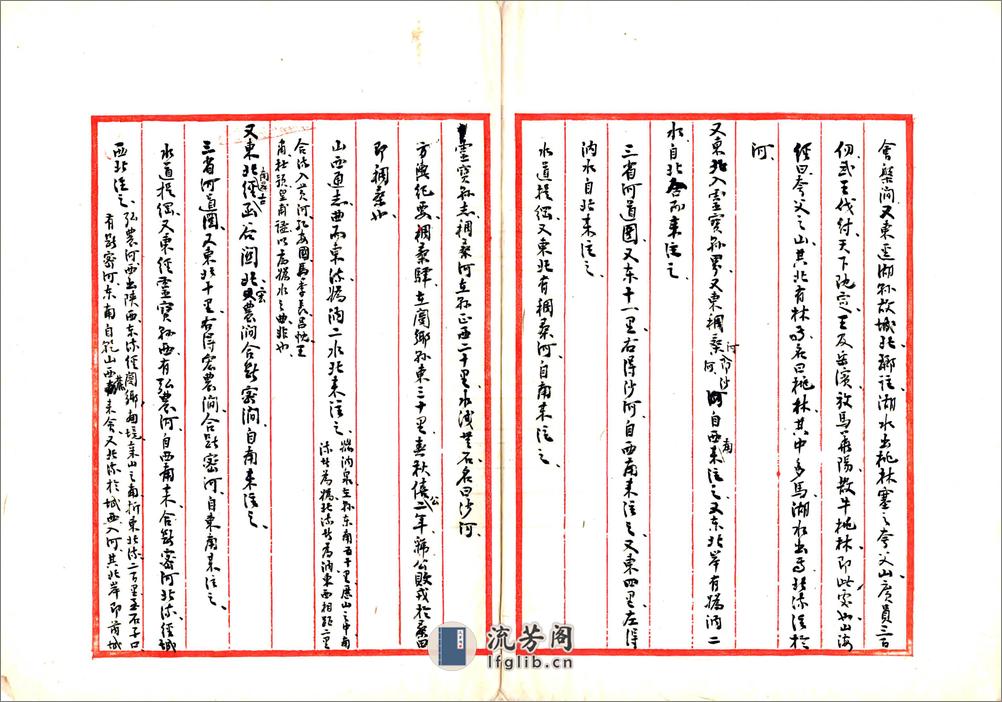 會槃澗又東逕湖縣故城北鄰注湖水出桃林塞之夸父山廣員三百
仞武王伐紂天下既定王及岳濱放馬華陽散牛桃林即此處也山海
經曰夸父之山其北有林焉名曰桃林其中多馬湖水出焉北流注於
河
又東北入靈寶縣界又東稠桑河即沙河自西南來注之又東北岸有嬀汭二
水自北來注之
三省河道圖又東十一里右得沙河自西南來注之又東四里左得
汭水自北來注之
水道提綱又東北有稠桑河自南來注之
靈寶縣志稠桑河在縣正西二十里水淺無石名曰沙河
方輿紀要稠桑驛在閿鄉縣東三十里春秋僖公二年虢公敗戎於桑田
即稠桑也
山西通志曲而東流嬀汭二水北來注之嬀汭泉在縣東南五十里歷山之中南
流者為嬀北流者為汭東西相距二里
合流入黃河孔安國馬季長呂忱王
肅杜預皇甫謐以為嬀水之曲非也
又東北經函谷關北宏農澗合斷密澗自南來注之
三省河道圖又東北十里右得宏農澗合斷密河自東南來注之
水道提綱又東經靈寶縣西有弘農河自西南來合斷密河北流經城
西北注之弘農河西出陝西東流經閿鄉南境秦山之南折東北流二百里至石子口
有斷密河東南自乾山西麓來會又北流於城西入河其北岸即芮城
流芳阁
lfglib.cn